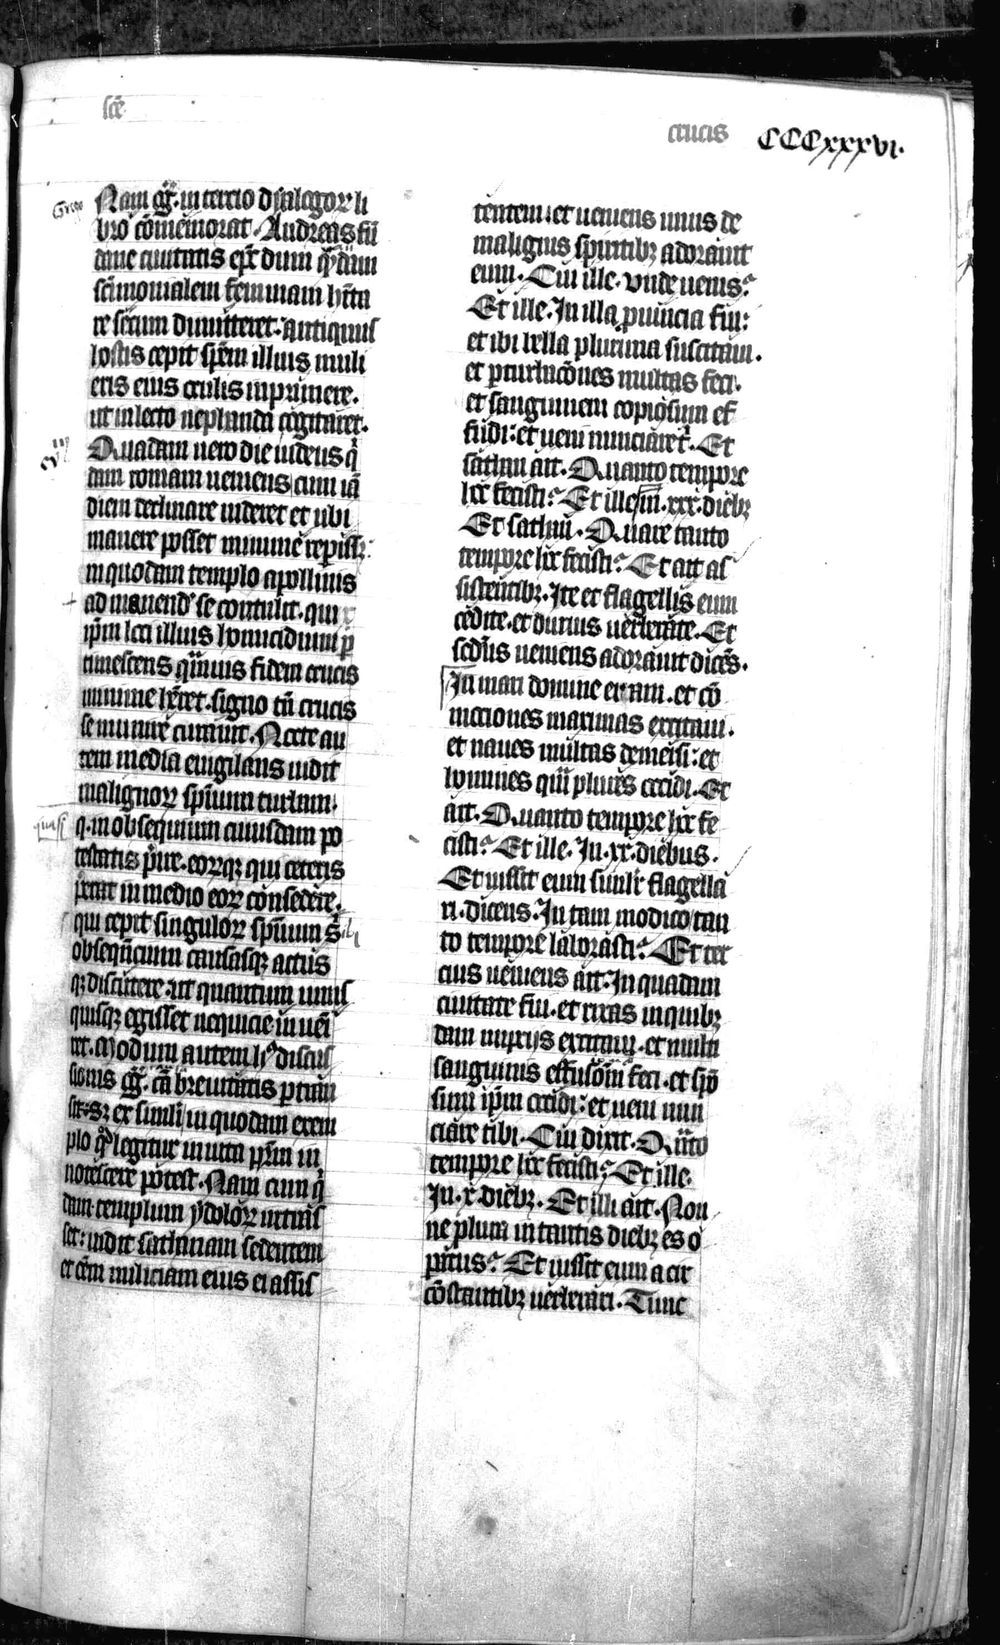 sce͂
crucis CCCxxxvi.
Grego
Nam gg̃. in tercio dyalogoꝝ li
bro cōmemorat. Andreas fū
dane ciuitatis ep̄c dum qͣdam
sc̄imonialem feminam hīta
re secum dimitteret. antiquus
hostis cepit spēm illius muli
eris eius oculis inprimere.
ut in lecto nephanda cogitaret.
Quadam uero die iudeus qͥ
dam romam ueniens cum iā
diem declinare uideret et ubi
manere posset minime repiss;
in quodam templo apollinis
ad manend᷒ se contulit. qui
ip̄m loci illius homicidium ꝑ
timescens qͣmuis fidem crucis
minime hēret. signo tn̄ crucis
se munire curauit. Nocte au
tem media euigilans uidit
malignoꝝ spūum turbam.
quasi
q. in obsequium cuiusdam po
testatis p̄ire. eorqꝫ qui ceteris
p̄erat in medio eoꝝ consedere.
qui cepit singuloꝝ spūum sibi
obseqn̄cium causasqꝫ actus
qꝫ discutere. ut quantum unus
quisqꝫ egisset nequicie inuēi
ret. Modum autem hͦ discus
sionis gg̃. cā breuitatis p̄tran
sit. Sꝫ ex simili in quodam exem
plo qͦd legitur in uita pr̄m in
notescere potest. Nam cum qͥ
dam templum ydoloꝝ intras
set: uidit sathanam sedentem
et oēm miliciam eius ei assis
tentem: et ueniens unus de
malignis spiritibꝫ adorauit
eum. Cui ille. vnde uenis?
Et ille. In illa ꝓuincia fui:
et ibi bella plurima suscitaui.
et ꝑturbacōnes multas feci.
et sanguinem copiosum ef
fudi: et ueni nunciare tͥ. Et
sathan ait. Quanto tempore
hec fecisti? Et ille in .xxx. diebꝫ
Et sathan. Quare tanto
tempore hec fecisti? Et ait as
sistentibꝫ. Ite et flagellis eum
cedite. et durius uerberate. Et
sed̄us ueniens adorauit dicēs.
In mari domine eram. et cō
mociones maximas excitaui.
et naues multas demersi: et
homines quā plures occidi. Et
ait. Quanto tempore hec fe
cisti? Et ille. In .xx. diebus.
Et iussit eum similr̄ flagella
ri. dicens. In tam modico tan
to tempore laborasti? Et ter
cius ueniens ait. In quadam
ciuitate fui. et rixas in quibꝫ
dam nupcijs excitaui. et multā
sanguinis effusiōm feci. et spō
sum ip̄m occidi: et ueni nun
ciare tibi. Cui dixit. Quāto
tempore hec fecisti? Et ille.
In .x. diebꝫ. Et illi ait. Non
ne plura in tantis diebꝫ es o
ꝑatus? Et iussit eum a cir
cōstantibꝫ uerberari. Tunc